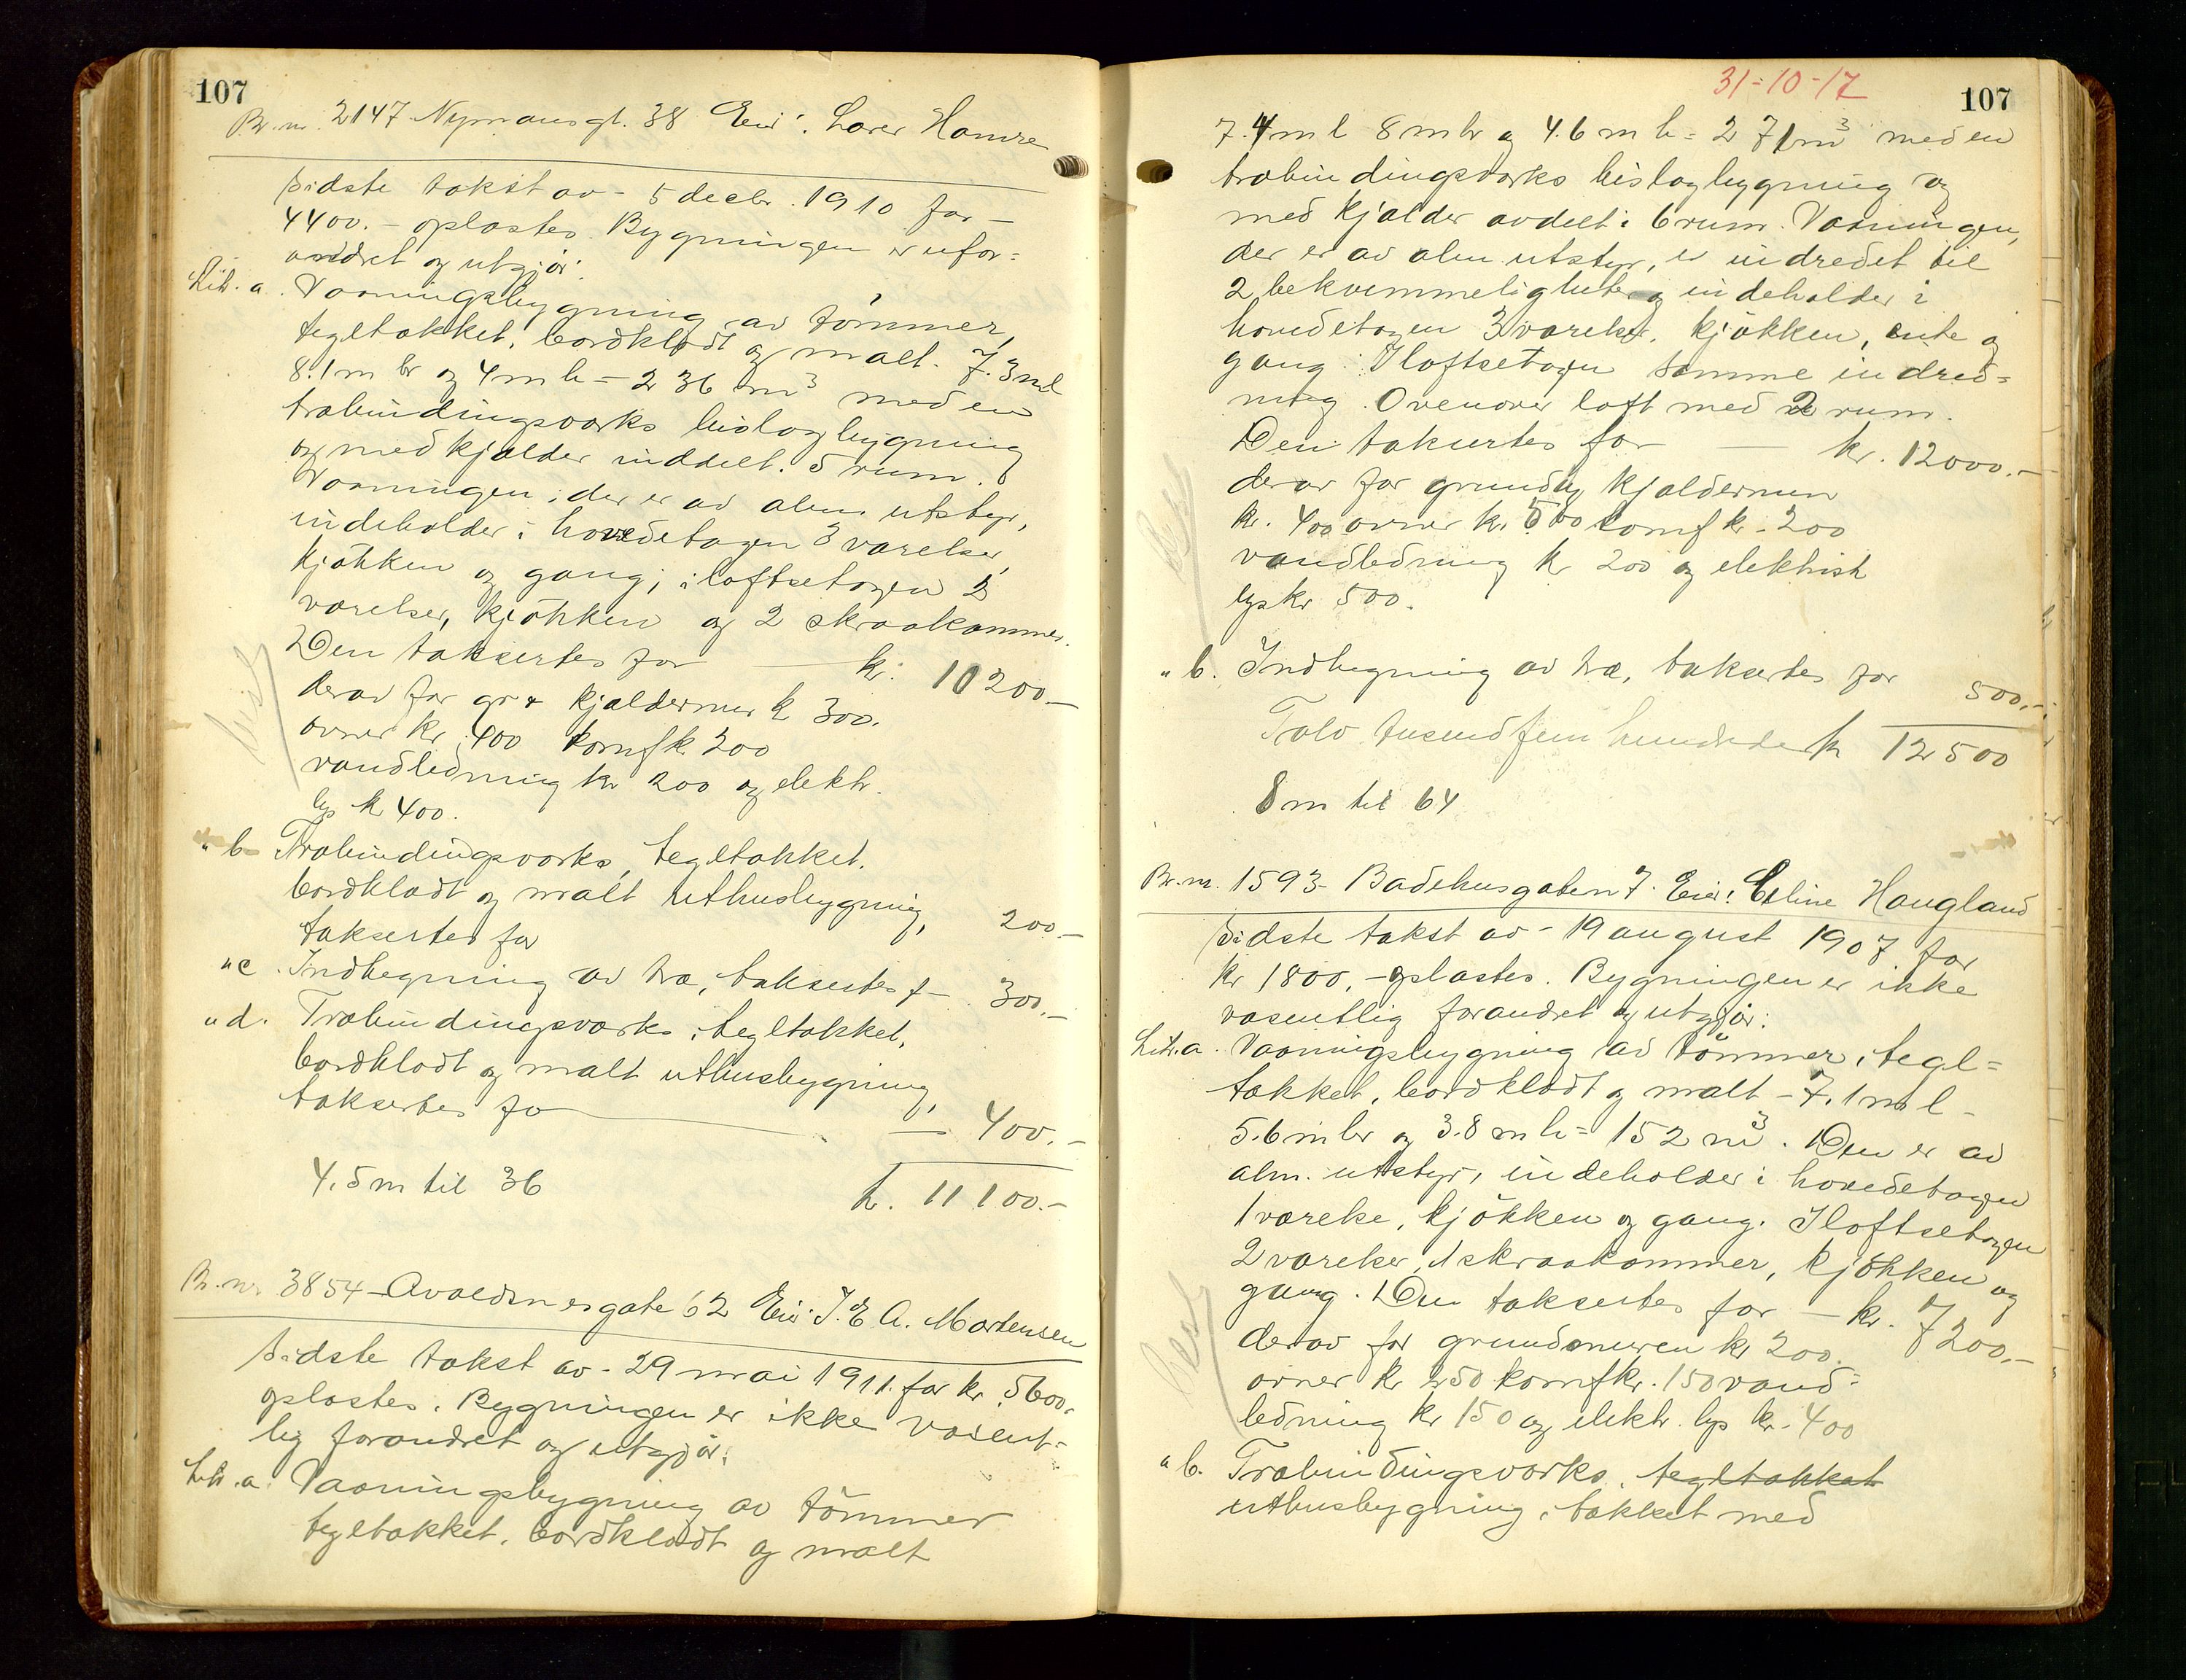 107
Br.nr. 2147 Nymansgt. 38 Eier: Lars Hamre
Sidste takst av - 5 decbr. 1910 for -
4400.- oplæstes. Bygningen er ufor=
andret og utgjør:
Litr. a. Vaaningsbygning av tömmer,
tegltækket, bordklædt og malt. 7.3 m l
8.1 m br og 4 m h = 236 m³ med en
træbindingsværks bislagbygning
og med kjælder inddelt. 5 rum.
Vaaningen, der er av alm. utstyr,
indeholder i hovedetagen 3 værelser,
kjøkken og gang; i loftsetagen 2
værelser, kjøkken og 2 skraakammer.
Den taksertes for — kr. 10200.—
derav for gr & kjældermur k 300.
ovner kr. 400 komf k 200
vandledning kr 200 og elektr.
lys k 400.
" b Træbindingsværks, tegltækket.
bordklædt og malt uthusbygning,
taksertes for 200.—
" c. Indhegning av træ, taksertes f - 300.—
" d. Træbindingsværks, tegltækket,
bordklædt og malt uthusbygning,
taksertes for — 400.-
4.5 m til 36 k. 11100.-
Br.nr. 3854 - Avaldsnesgate 62 Eier: J. E. A. Mortensen
Sidste takst av - 29 mai 1911. for kr. 5600.
oplæstes. Bygningen er ikke væsent=
lig forandret og utgjør:
Litr. a. Vaaningsbygning av tömmer
tegltækket. bordklædt og malt
31-10-17
107
7.4 m l 8 m br og 4.6 m h = 271 m³ med en
træbindingsværks bislagbygning og
med kjælder avdelt i 6 rum. Vaaningen,
der er av alm utstyr, er indredet til
2 bekvemmeligheter og indeholder i
hovedetagen 3 værelser, kjøkken, ente og
gang. I loftsetagen samme indred=
ning. Ovenover loft med 2 rum.
Den taksertes for — kr. 12000.-
derav for grund og kjældermur
kr. 400 ovner kr. 500 komf k. 200
vandledning kr 200 og elektrisk
lys kr 500.
" b. Indhegning av træ, taksertes for 500.-
Tolv tusend fem hundrede kr 12500
8 m til 64
Br.nr. 1593 - Badehusgaten 7. Eier: Celine Haugland
Sidste takst av - 19 august 1907 for
kr 1800.- oplæstes. Bygningen er ikke
væsentlig forandret og utgjør:
Litr. a. Vaaningsbygning av tömmer, tegl=
tækket, bordklædt og malt - 7.1 m l -
5.6 m br og 3.8 m h = 152 m³. Den er av
alm. utstyr, indeholder i hovedetagen
1 værelse, kjøkken og gang. I loftsetagen
2 værelser, 1 skraakammer, kjøkken og
gang. Den taksertes for — kr. 7200.—
derav for grundmuren kr 200.
ovner kr 250 komf kr. 150 vand=
ledning kr 150 og elektr. lys kr. 400
" b. Træbindingsværks, tegltækket
uthusbygning, tækket med